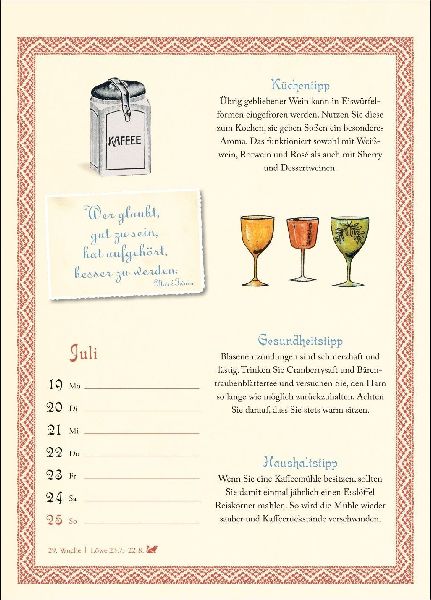 KAFFEE
Wer glaubt,
gut zu sein,
hat aufgehört,
besser zu werden.
Küchentipp
Übrig gebliebener Wein kann in Eiswürfel-
formen eingefroren werden. Nutzen Sie diese
zum Kochen, sie geben Soßen ein besonderes
Aroma. Das funktioniert sowohl mit Weiß-
wein, Rotwein und Rosé als auch mit Sherry
und Dessertweinen.
Juli
19 Mo
20 Di
21 Mi
22 Do
23 Fr
24 Sa
25 So
29. Woche | Löwe 23.7.-22.8.
Gesundheitstipp
Blasenentzündungen sind schmerzhaft und
lästig. Trinken Sie Cranberrysaft und Bären-
traubenblättertee und versuchen Sie, den Harn
so lange wie möglich zurückzuhalten. Achten
Sie darauf, dass Sie stets warm sitzen.
Haushaltstipp
Wenn Sie eine Kaffeemühle besitzen, sollten
Sie damit einmal jährlich einen Esslöffel
Reiskörner mahlen. So wird die Mühle wieder
sauber und Kaffeerückstände verschwinden.